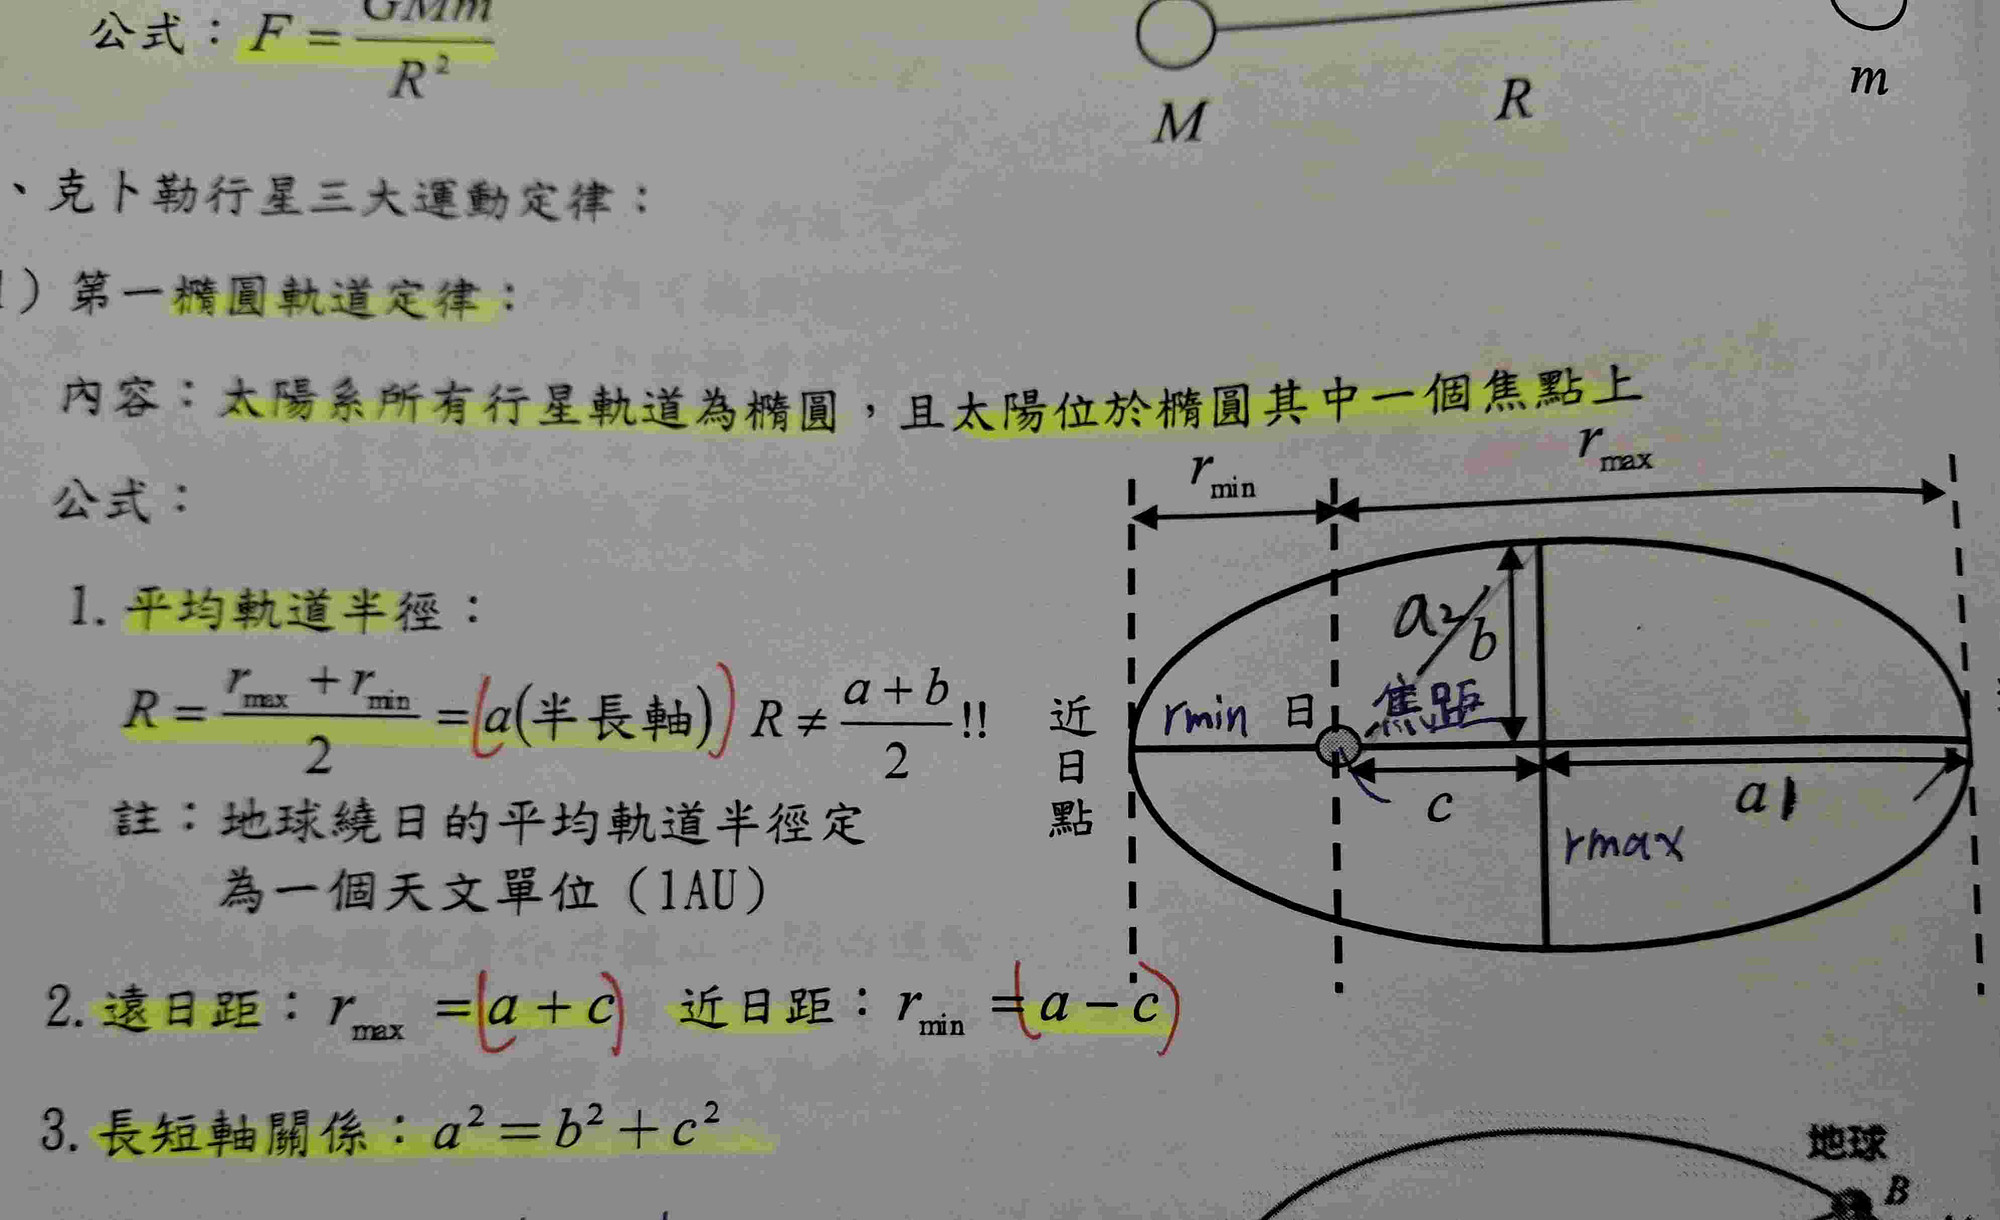 公式：F = GMm / R²
M R m
、克卜勒行星三大運動定律：
）第一橢圓軌道定律：
內容：太陽系所有行星軌道為橢圓，且太陽位於橢圓其中一個焦點上
公式：
r min r max
1. 平均軌道半徑：
R = (r max + r min) / 2 = (a(半長軸)) R ≠ (a + b) / 2 !!
a2 b
近日點
rmin 日 焦距
c a1
rmax
註：地球繞日的平均軌道半徑定
為一個天文單位（1AU）
2. 遠日距：r max = (a + c) 近日距：r min = (a − c)
3. 長短軸關係：a² = b² + c²
地球
B